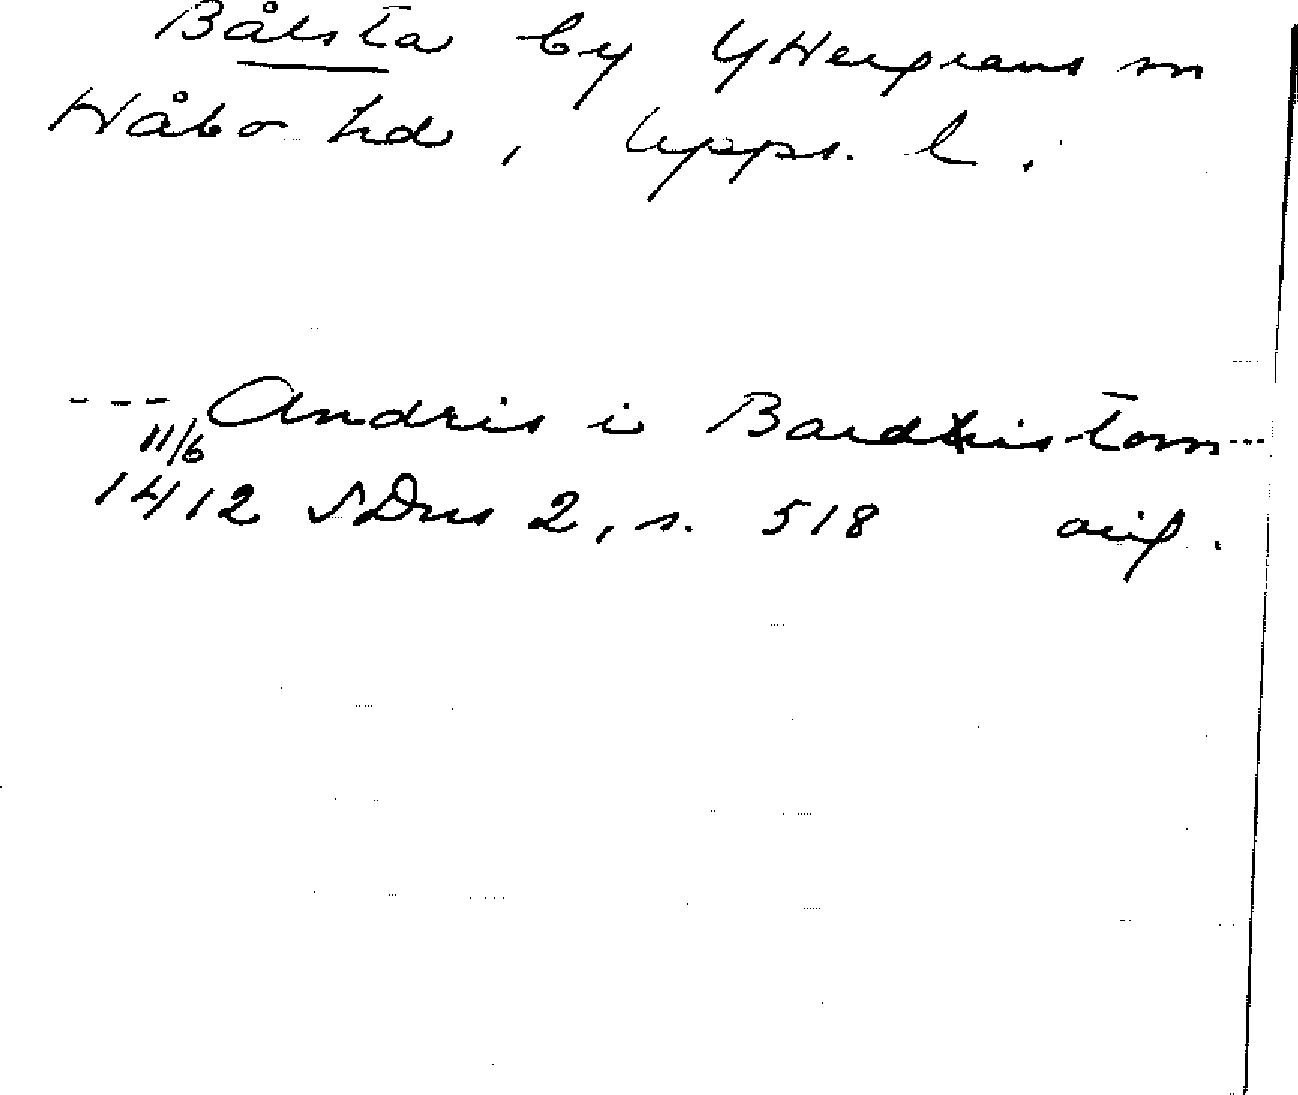 Bålsta by Yttergrans sn
Håbo hd, Upps. l.
--- Andris i Bardhistom ---
11/6
1412 SDns 2, s. 518 orig.